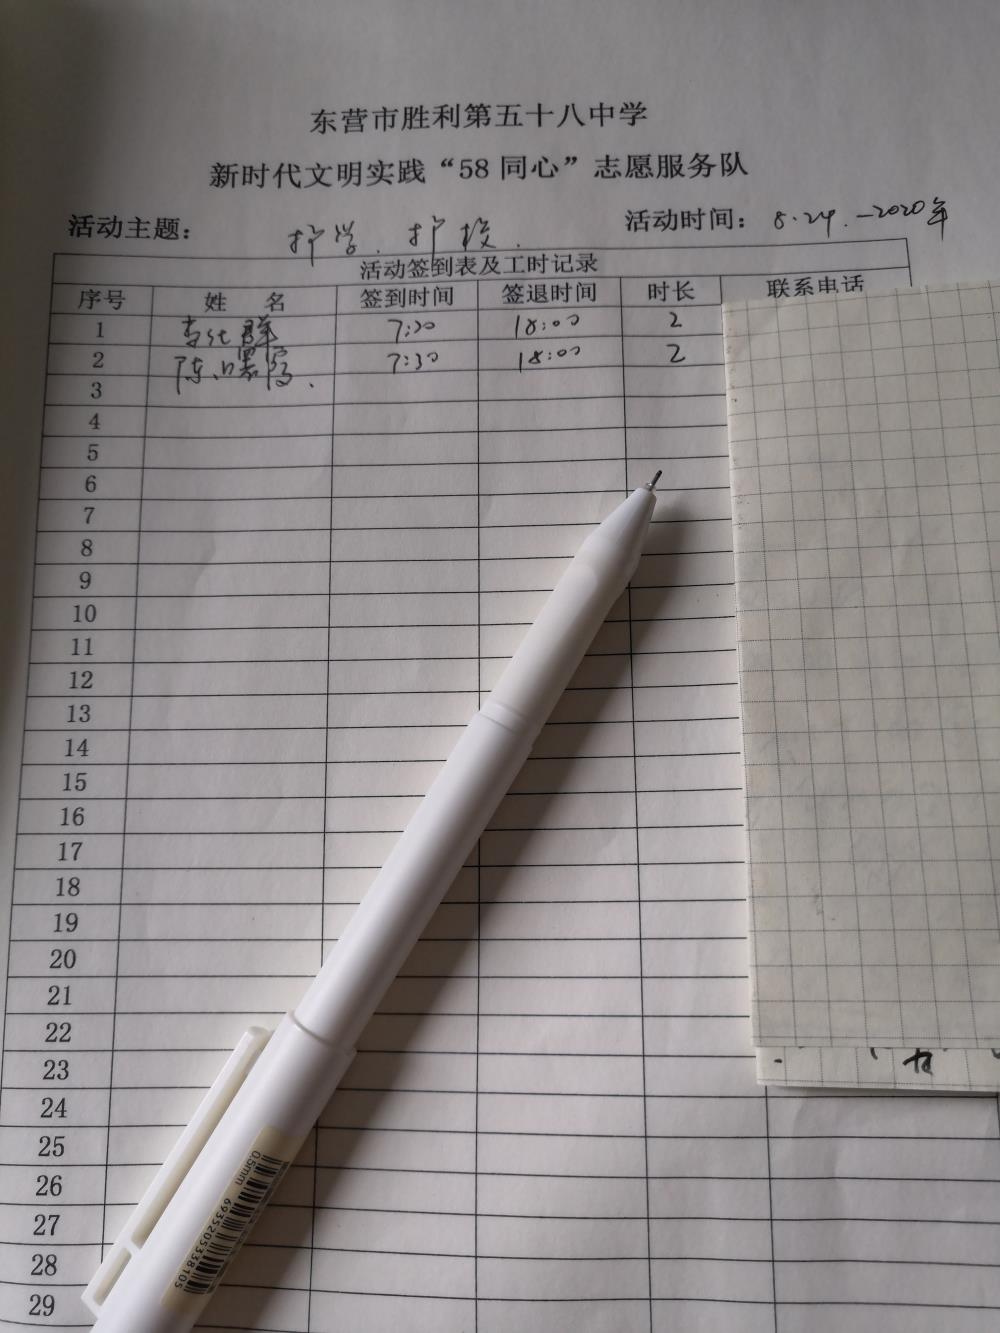 东营市胜利第五十八中学
新时代文明实践“58 同心”志愿服务队
活动主题： 护学、护校. 活动时间: 8.24.-2020年
活动签到表及工时记录
序号 姓 名 签到时间 签退时间 时长 联系电话
1 7:20 18:00 2
2 陈 7:30 18:00 2
3
4
5
6
7
8
9
10
11
12
13
14
15
16
17
18
19
20
21
22
23
24
25
26
27
28
29
0.5mm
6935205338105